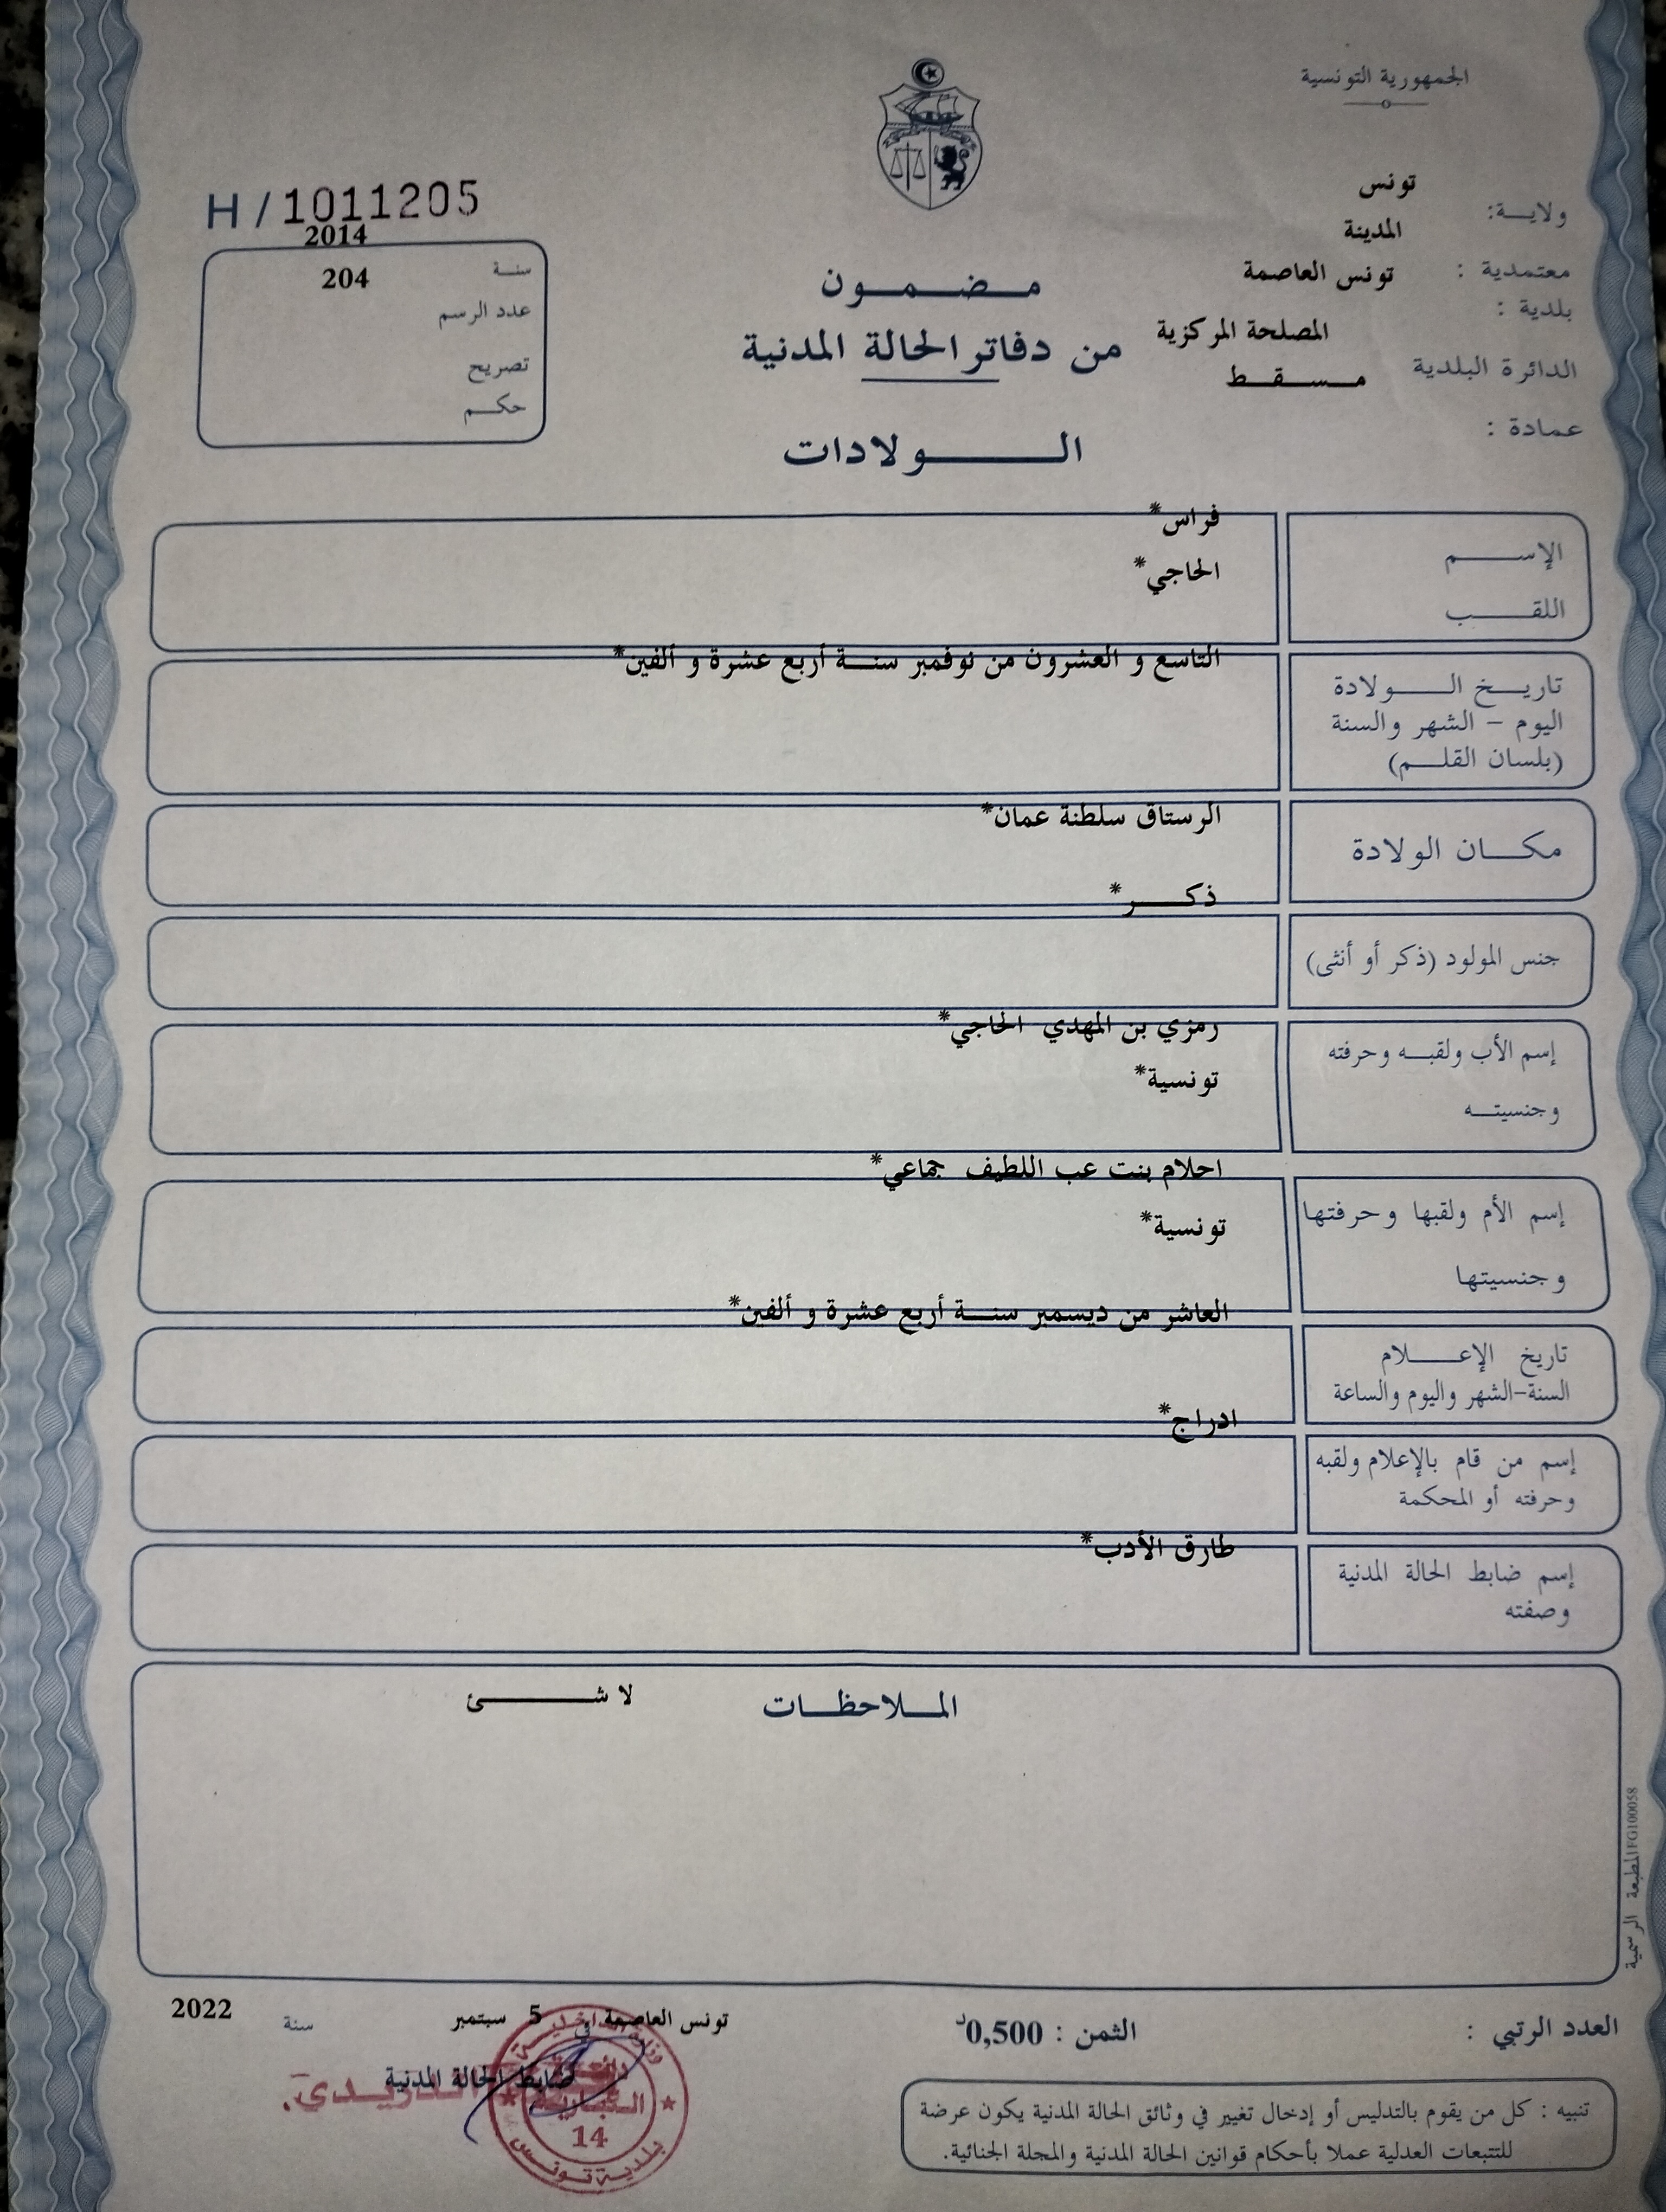 الجمهورية التونسية
ولايـــة: تونس
معتمدية : المدينة
بلدية : تونس العاصمة
الدائرة البلدية المصلحة المركزية
عمادة : مــســقــط
H / 1011205
سنـــة 2014
عدد الرسم 204
تصريح
حكـــم
مــضــمــون
من دفاتر الحالة المدنية
الـــولادات
الإســـــم فراس*
اللقـــــب الحاجي*
تاريـــخ الـــــولادة
اليوم - الشهر والسنة
(بلسان القلـــم)
التاسع و العشرون من نوفمبر سنـــة أربع عشرة و ألفين*
مكـــان الولادة الرستاق سلطنة عمان*
جنس المولود (ذكر أو أنثى) ذكـــر*
إسم الأب ولقبـــه وحرفته رمزي بن المهدي الحاجي*
وجنسيتـــه تونسية*
إسم الأم ولقبها وحرفتها احلام بنت عب اللطيف جماعي*
وجنسيتها تونسية*
تاريخ الإعـــلام
السنة-الشهر واليوم والساعة
العاشر من ديسمبر سنـــة أربع عشرة و ألفين*
إسم من قام بالإعلام ولقبه
وحرفته أو المحكمة
ادراج*
إسم ضابط الحالة المدنية
وصفته
طارق الأدب*
المـــلاحظـــات لا شـــــئ
المطبعة الرسمية IFG100058
العدد الرتبي :
الثمن : 0,500د
تونس العاصمة في 5 سبتمبر سنة 2022
ضابط الحالة المدنية
الدريدي.
14
بلدية تونس
تنبيه : كل من يقوم بالتدليس أو إدخال تغيير في وثائق الحالة المدنية يكون عرضة
للتتبعات العدلية عملا بأحكام قوانين الحالة المدنية والمجلة الجنائية.